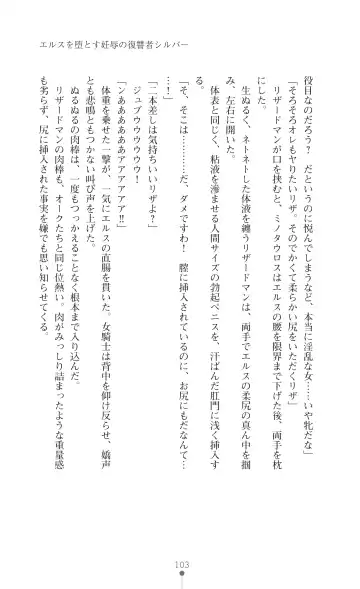 エルスを堕とす妊辱の復讐者シルバー
役目なのだろう？　だというのに悦んでしまうなど、本当に淫乱な女……いや牝だな」
「そろそろオレもヤりたいリザ。そのでかくて柔らかい尻をいただくリザ」
リザードマンが口を挟むと、ミノタウロスはエルスの腰を限界まで下げた後、両手を枕
にした。
生ぬるく、ネトネトした体液を纏うリザードマンは、両手でエルスの柔尻の真ん中を掴
み、左右に開いた。
体表と同じく、粘液を滲ませる人間サイズの勃起ペニスを、汗ばんだ肛門に浅く挿入す
る。
「そ、そこは…………だ、ダメですわ！　膣に挿入されているのに、お尻にもだなんて…
…！」
「二本差しは気持ちいいリザよ？」
ジュブウウウウウウ！
「ンああああああアアアアアア!!」
体重を乗せた一撃が、一気にエルスの直腸を貫いた。女騎士は背中を仰け反らせ、嬌声
とも悲鳴ともつかない叫び声を上げた。
ぬるぬるの肉棒は、一度もつっかえることなく根本まで入り込んだ。
リザードマンの肉棒も、オークたちと同じ位熱い。肉がみっしり詰まったような重量感
も劣らず、尻に挿入された事実を嫌でも思い知らせてくる。
103